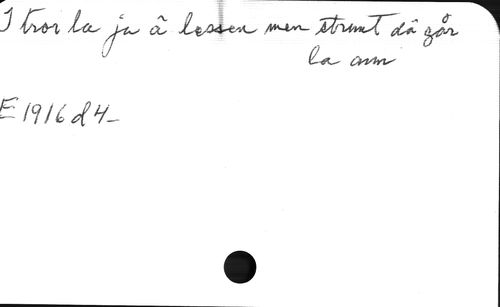 I tror la ja å lessen men strunt då går
la am
E 1916 d 4-